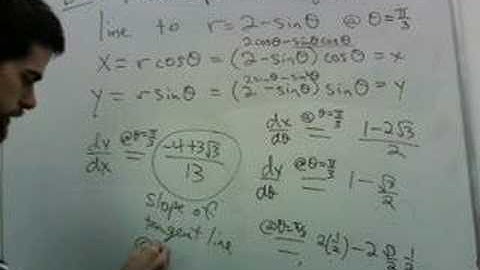 line to r = 2 - sinθ @ θ = π/3
2cosθ - sinθcosθ
x = r cosθ = (2 - sinθ) cosθ = x
2sinθ - sin²θ
y = r sinθ = (2 - sinθ) sinθ = y
dy/dx @θ=π/3 = (-4+3√3)/13
slope of
tangent line
@
dx/dθ @θ=π/3 = (1-2√3)/2
dy/dθ @θ=π/3 = 1 - √3/2
@θ=π/3 = 2(1/2) - 2 √3/2 · 1/2